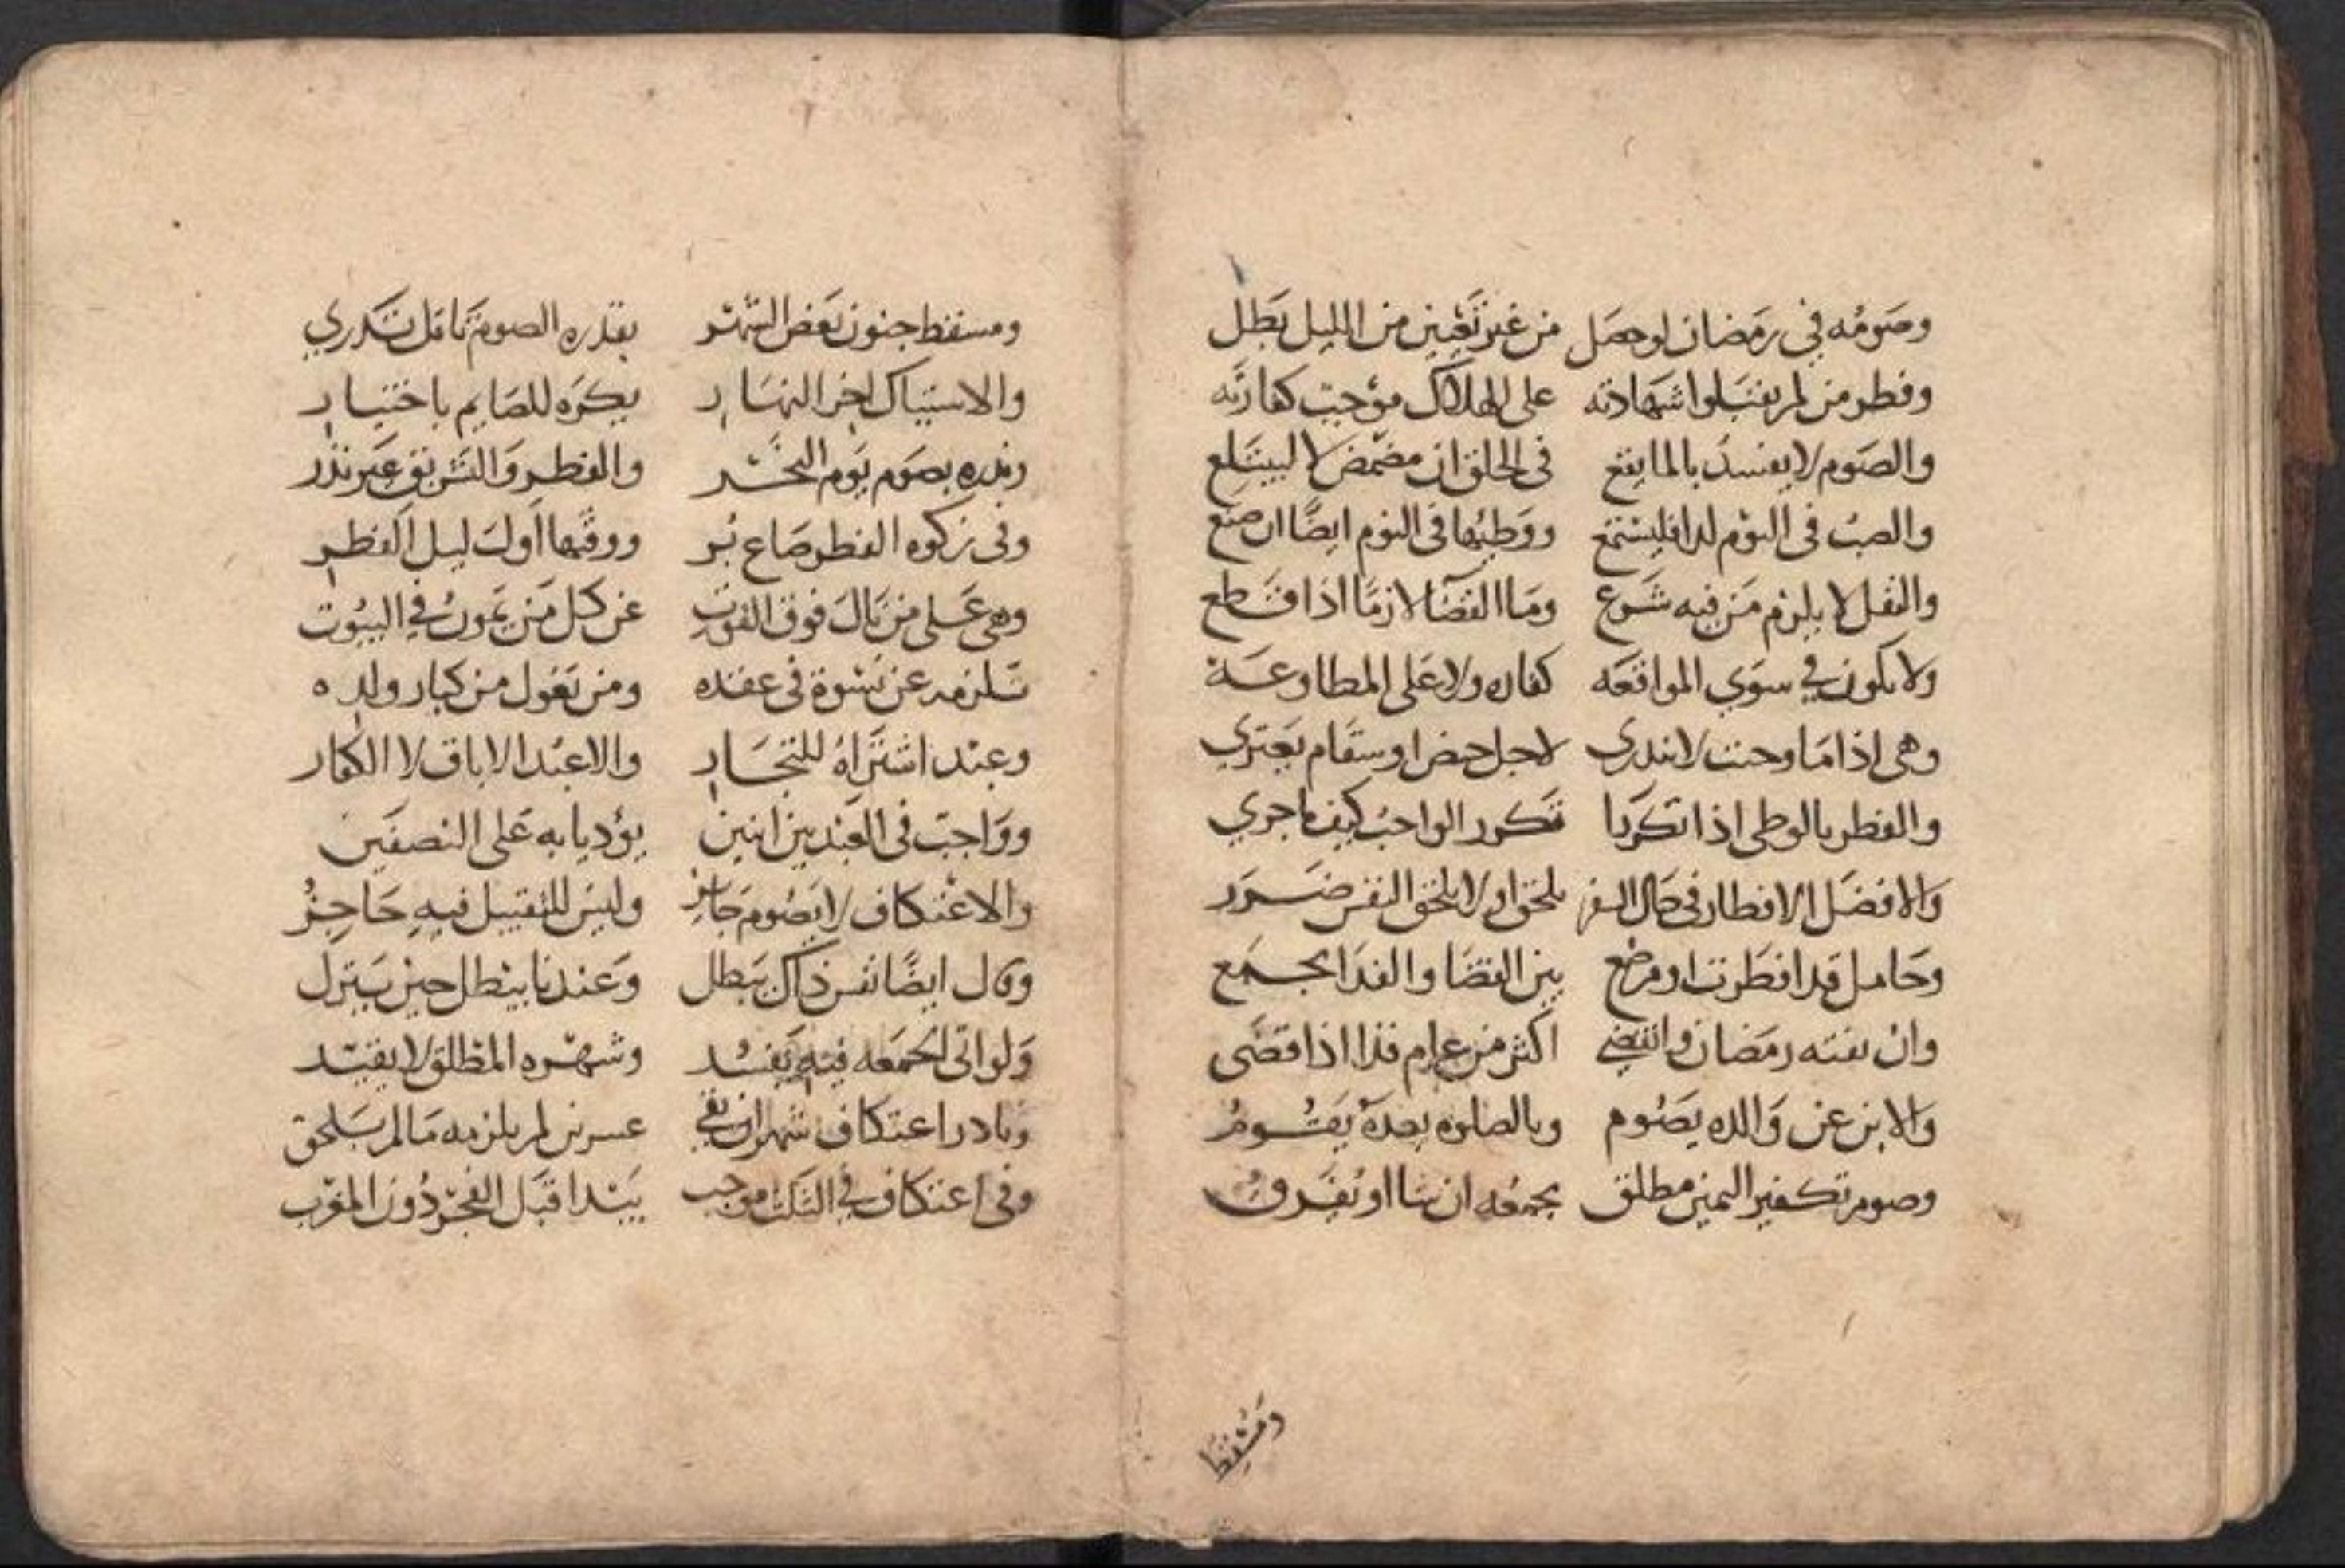 وصومه في رمضان لو حصل من غير تعيين من الليل بطل
وفطر من لم يقبلوا شهادته على الهلاك موجب كفارته
والصوم لا يفسد بالما يقع في الحلق ان مضمض لا ليبتلع
والصب في النوم لدا فليستمع ووطيها في النوم ايضًا ان صنع
والنفل لا يلزم من فيه شرع وما القضا لازمًا اذا قطع
ولا يكون في سوي المواقعه كفاره ولا على المطاوعة
وهي اذا ما وحنت لا تدري لاجل حيض او سقام يعتري
والفطر بالوطي اذا تكررا تكرر الواجب كيف ما جري
والافضل الافطار في حال السفر يلحق او لا يلحق النفس ضرر
وحامل قد افطرت او مرضع بين القضا والفدا بجمع
وان يفته رمضان وانقضي اكثر من عام فذا اذا قضى
والابن عن والده يصوم وبالصلوه بعده يقوم
وصوم تكفير اليمين مطلق بجمعه ان شا او يفرق
ومسقط
ومسقط جنون بعض الشهر بقدره الصوم تامل تدري
والاستياك اخر النهار يكره للصايم باختيار
ونذره بصوم يوم النحر والفطر والتشريق غير نذر
وفي زكوه الفطر صاع بر ووقتها اول ليل الفطر
وهي على من نال فوق القوت عن كل من يمون في البيوت
تلزمه عن نشوة في عقده ومن تعول من كبار ولده
وعند اشتراه للتجار والاعبد الاباق لا الكفار
وواجب في العبد بين اثنين يؤديا به على النصفين
والاعتكاف لا بصوم جايز وليس للتقبيل فيه حاجز
وقال ايضًا نفس ذاك يبطل وعندنا يبطل حين ينزل
ولو اتى الجمعه فيه يفسد وشهره المطلق لا يقيد
ونادر اعتكاف شهر ان بقي عسرين لم يلزمه ما لم يلحق
وفي اعتكاف في الثلث موجب يبتدا قبل الفجر دون المغرب